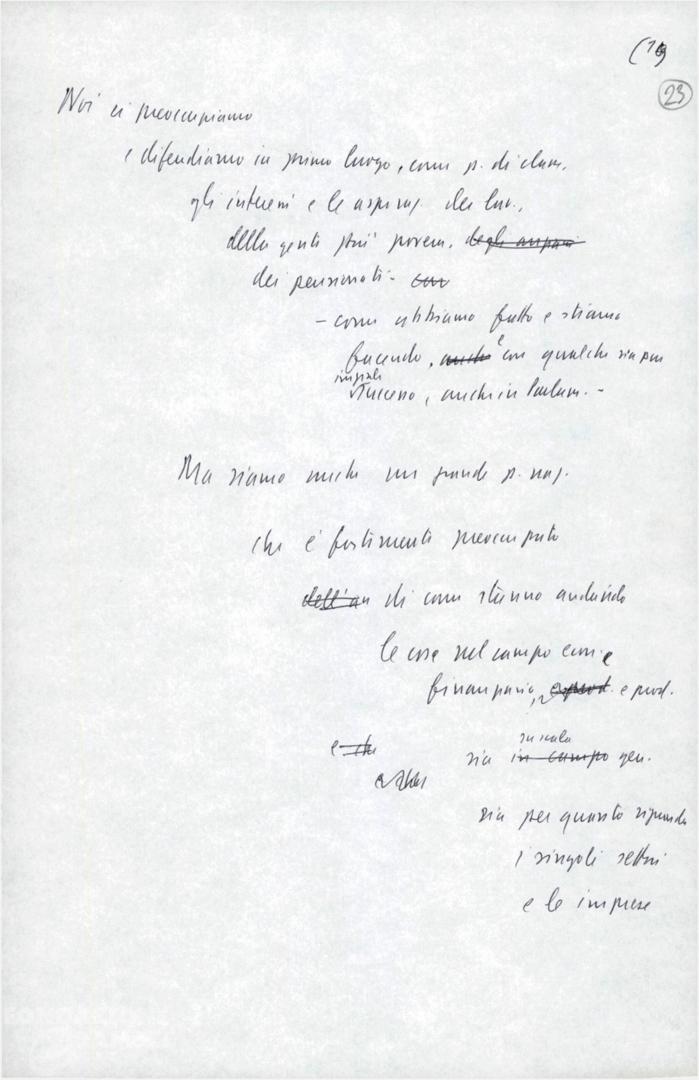 (19
23
Noi ci preoccupiamo
e difendiamo in primo luogo, come p. di classe,
gli interessi e le aspiraz. dei lav.,
della gente più povera, degli anziani
dei pensionati - con
- come abbiamo fatto e stiamo
facendo, anche e con qualche sia pur
iniziale
successo, anche in Parlam. -
Ma siamo anche un grande p. naz.
che è fortemente preoccupato
dell'an di come stanno andando
le cose nel campo econ. e
finanziario, e prod. e prod.
su scala
e che sia in campo gen.
sia per quanto riguarda
i singoli settori
e le imprese